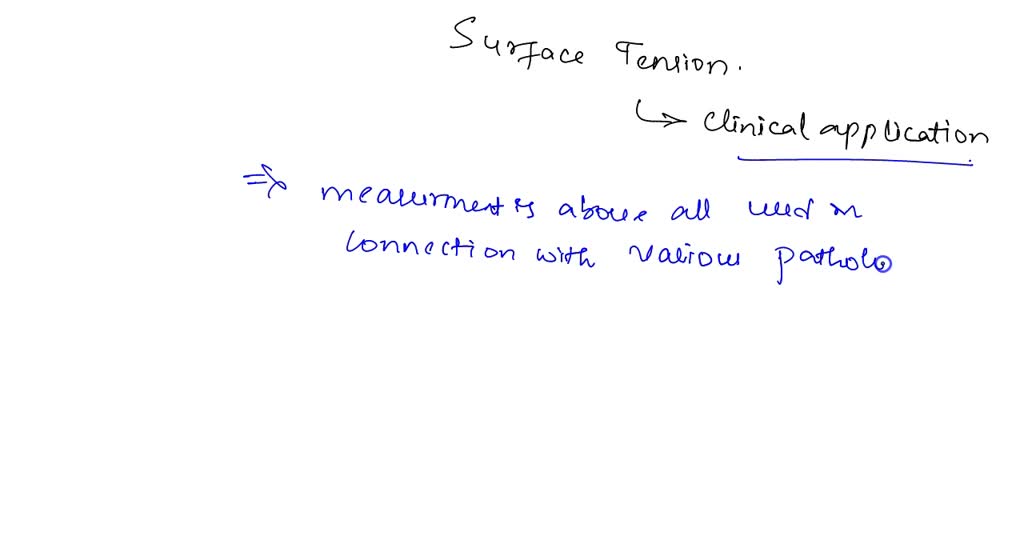 Surface Tension.
↳ clinical application
⇒ measurment is above all used in
connection with various patholo